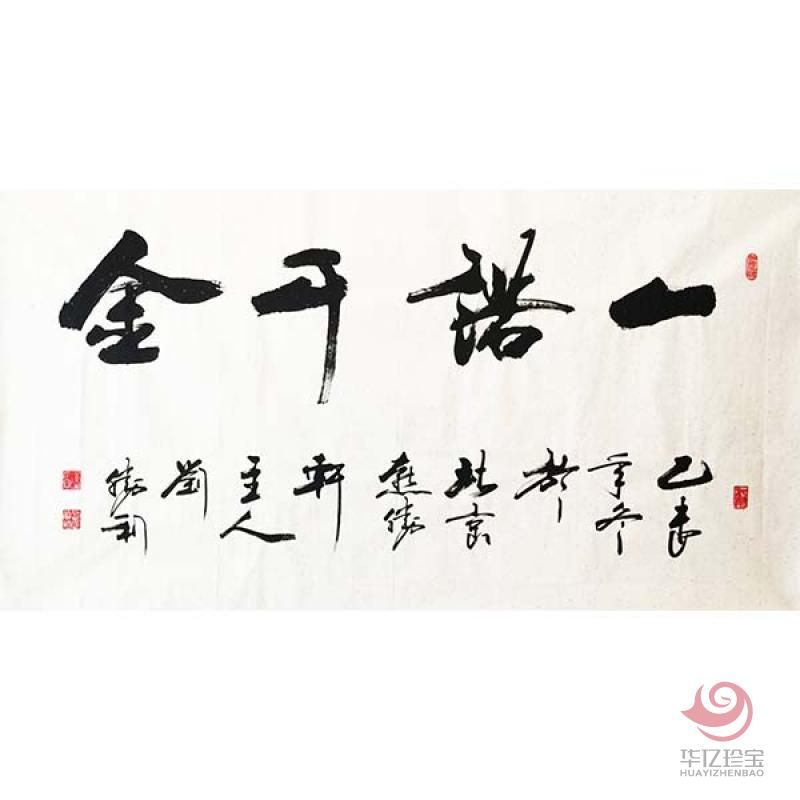 一諾千金
乙未年冬於北京軒主人劉
华亿珍宝
HUAYIZHENBAO